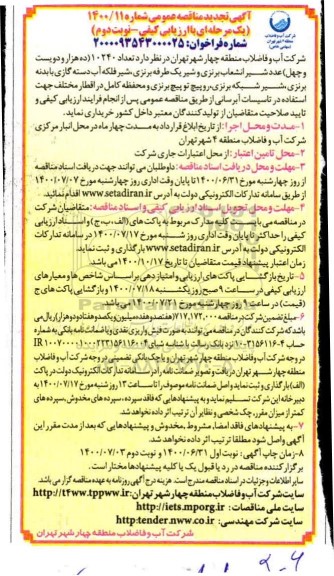 آگهی تجدید مناقصه عمومی شماره ۱۴۰۰/۱۱
(یک مرحله ای با ارزیابی کیفی-نوبت دوم)
شماره فراخوان: ۲۰۰۰۰۹۳۵۴۳۰۰۰۰۲۵
شرکت آب و فاضلاب منطقه چهار شهر تهران در نظر دارد تعداد ۱۰۲۴۰ (ده هزار و دویست
و چهل) عدد شیر انشعاب برنزی و شیر یک طرفه برنزی، شیر فلکه آب دسته گازی با بدنه
برنزی، شیر شبکه برنزی، روپیچ توپیچ برنزی و محفظه کامل در اقطار مختلف جهت
استفاده در تاسیسات آبرسانی از طریق مناقصه عمومی پس از انجام فرایند ارزیابی کیفی و
تایید صلاحیت متقاضیان از تولید کنندگان معتبر داخل کشور خریداری نماید.
۱- مدت و محل اجرا: از تاریخ ابلاغ قرارداد به مدت چهار ماه در محل انبار مرکزی
شرکت آب و فاضلاب منطقه ۴ شهر تهران
۲- محل تامین اعتبار: از محل اعتبارات جاری شرکت
۳- مهلت و محل دریافت اسناد مناقصه: داوطلبان می توانند جهت دریافت اسناد مناقصه
از روز چهارشنبه مورخ ۱۴۰۰/۰۶/۳۱ تا پایان وقت اداری روز چهارشنبه مورخ ۱۴۰۰/۰۷/۰۷
از طریق سامانه تدارکات الکترونیکی دولت به آدرس www.setadiran.ir اقدام نمایند.
۴- مهلت و محل تحویل اسناد ارزیابی کیفی و اسناد مناقصه: متقاضیان شرکت
در مناقصه می بایست مدارک مربوط به پاکت های (الف، ب، ج) و اسناد ارزیابی
کیفی را حداکثر تا پایان وقت اداری روز شنبه مورخ ۱۴۰۰/۰۷/۱۷ در سامانه تدارکات
الکترونیکی دولت به آدرس www.setadiran.ir بارگذاری و ثبت نماید.
زمان اعتبار پیشنهاد قیمت متقاضیان تا تاریخ ۱۴۰۰/۱۰/۱۷ می باشد.
۵- تاریخ بازگشایی پاکت های ارزیابی و امتیازدهی بر اساس شاخص ها و معیارهای
ارزیابی کیفی در ساعت ۹ صبح روز یکشنبه ۱۴۰۰/۰۷/۱۸ و بازگشایی پاکت های ج
(قیمت) در ساعت روز چهارشنبه مورخ ۱۴۰۰/۰۷/۲۱ می باشد.
۶- مبلغ تضمین شرکت در مناقصه ۷۱۷,۱۷۲,۰۰۰ (هفتصد و هفده میلیون و یکصد و هفتاد و دو هزار) ریال می
باشد که شرکت کنندگان در مناقصه می توانند به صورت فیش واریز نقدی و یا ضمانت نامه بانکی به شماره
در وجه شرکت آب و فاضلاب منطقه چهار شهر تهران و یا چک بانکی تضمینی در وجه شرکت آب و فاضلاب
منطقه چهار شهر تهران دریافت و تصویر ضمانت نامه را در سامانه تدارکات الکترونیک دولت در پاکت
(الف) بارگذاری و ثبت نماید و اصل ضمانت نامه موصوف را تا ساعت ۱۳ روز شنبه مورخ ۱۴۰۰/۰۷/۱۷ به
دبیرخانه این شرکت تسلیم نماید و به پیشنهادهایی که فاقد سپرده، سپرده های مخدوش، سپرده های
کمتر از میزان مقرر، چک شخصی و نظایر آن ترتیب اثر داده نخواهد شد.
۷- به پیشنهادهای فاقد امضا، مشروط، مخدوش و پیشنهادهایی که بعد از مدت مقرر این
آگهی واصل شود مطلقا ترتیب اثر داده نخواهد شد.
۸- زمان چاپ آگهی: نوبت اول ۱۴۰۰/۰۶/۳۱ و نوبت دوم ۱۴۰۰/۰۷/۰۳
برگزار کننده مناقصه در رد یا قبول یک یا کلیه پیشنهادها مختار است.
سایر اطلاعات و جزئیات در اسناد مناقصه مندرج است. هزینه درج آگهی روزنامه به عهده مناقصه گزار می باشد.
سایت شرکت آب و فاضلاب منطقه چهار شهر تهران: http://t4ww.tppww.ir
سایت ملی مناقصات: http://iets.mporg.ir
سایت شرکت مهندسی: http:tender.nww.co.ir
شرکت آب و فاضلاب منطقه چهار شهر تهران